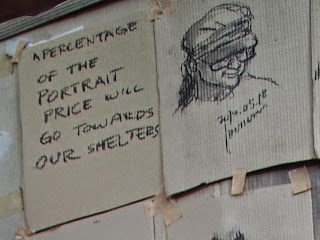 A PERCENTAGE
OF THE
PORTRAIT
PRICE WILL
GO TOWARDS
OUR SHELTERS